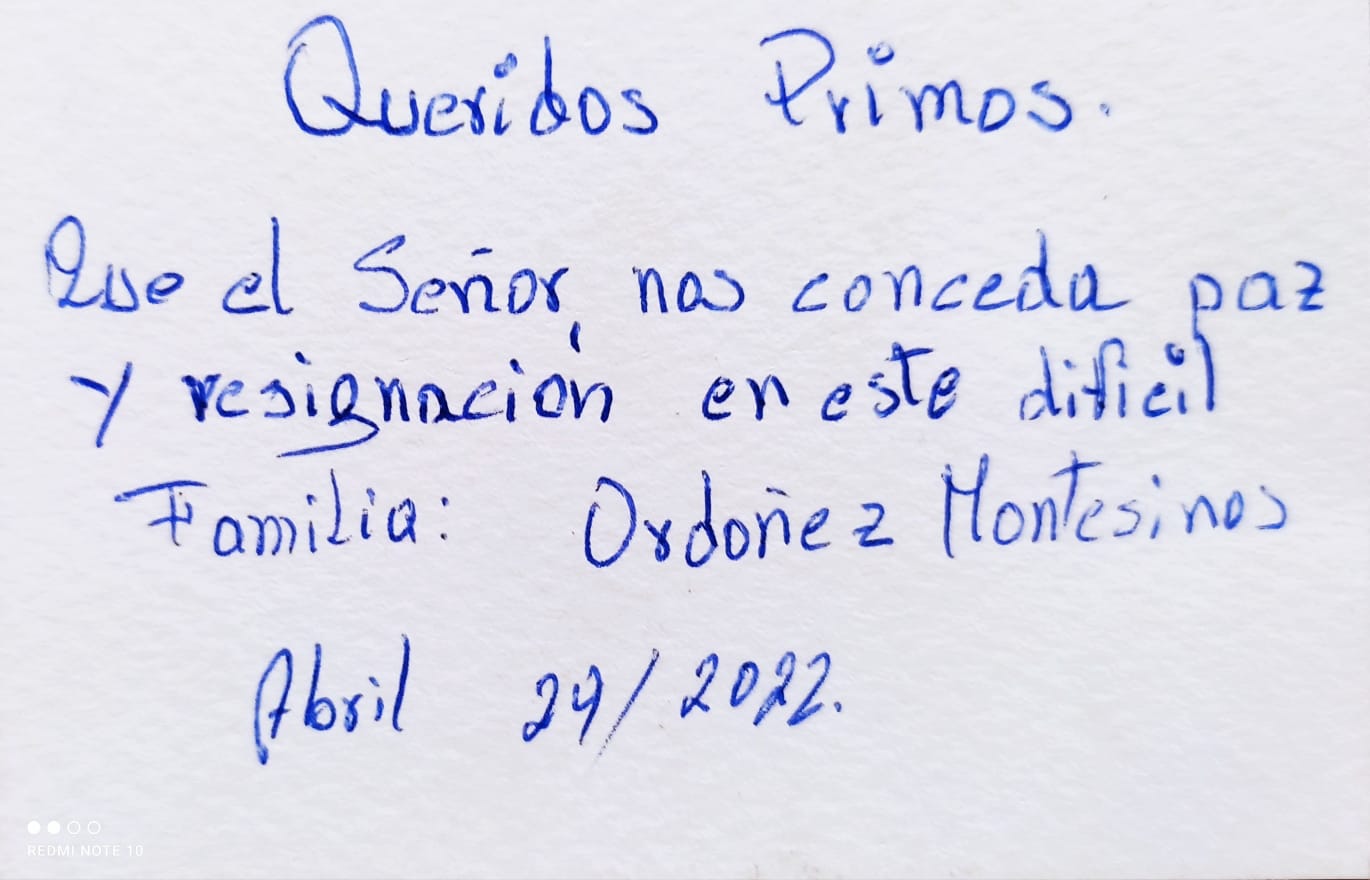 Queridos Primos.
Que el Señor, nos conceda paz
y resignación en este dificil
Familia: Ordoñez Montesinos
Abril 24/2022.
REDMI NOTE 10